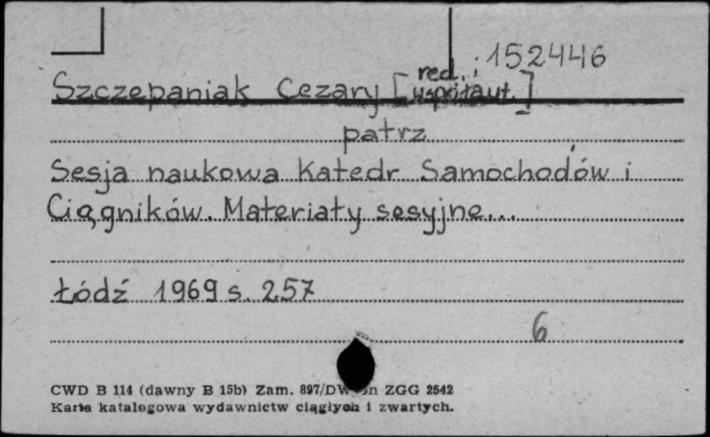 152446
Szczepaniak Cezary [red. i współaut.]
patrz
Sesja naukowa Katedr Samochodów i
Ciągników. Materiały sesyjne...
Łódź 1969 s. 257
6
CWD B 114 (dawny B 15b) Zam. 897/DW ZGG 2542
Karta katalogowa wydawnictw ciągłych i zwartych.